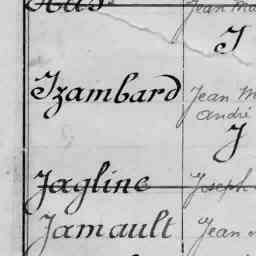 Jean Ma
I
Izambard Jean M
André
J
Jagline Joseph
Jamault Jean